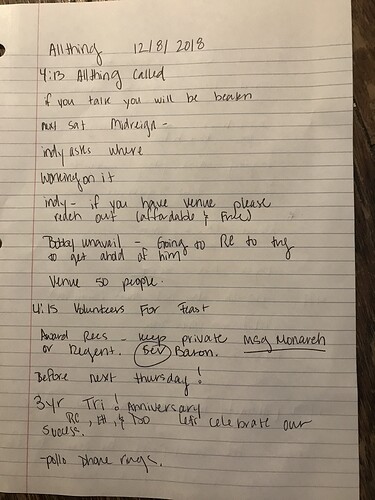 Allthing 12/8/2018
4:13 Allthing Called
if you talk you will be beaten
next sat Midreign -
indy asks where
working on it
indy - if you have venue please
reach out (affordable & Free)
Bobby unavail - Going to RC to try
to get ahold of him
Venue 50 people.
4:15 Volunteers For Feast
Award Recs - keep private msg Monarch
or Regent. Bev Baron.
Before next thursday!
3yr Tri! Anniversary
RC, EH, & DO lets celebrate our
Success.
-pollo phone rings.